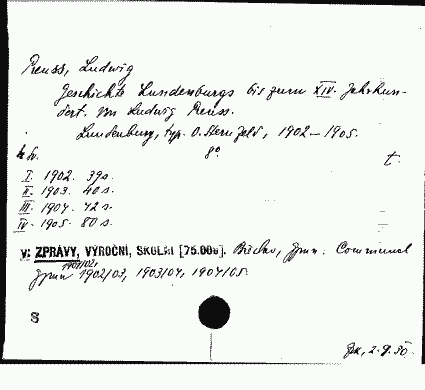 Reuss, Ludwig
Geschichte Lundenburgs bis zum XIV. Jahrhun-
dert. Von Ludwig Reuss.
Lundenburg, typ. O. Sternfeld, 1902–1905.
4 Sv. 8° t.
I. 1902. 39 s.
II. 1903. 40 s.
III. 1904. 42 s.
IV. 1905. 80 s.
v: ZPRÁVY, VÝROČNÍ, ŠKOLNÍ [75.005]. Břeclav, Gymn. Communal
1901/02,
Gymn 1902/03, 1903/04, 1904/05.
§
2.9.50.